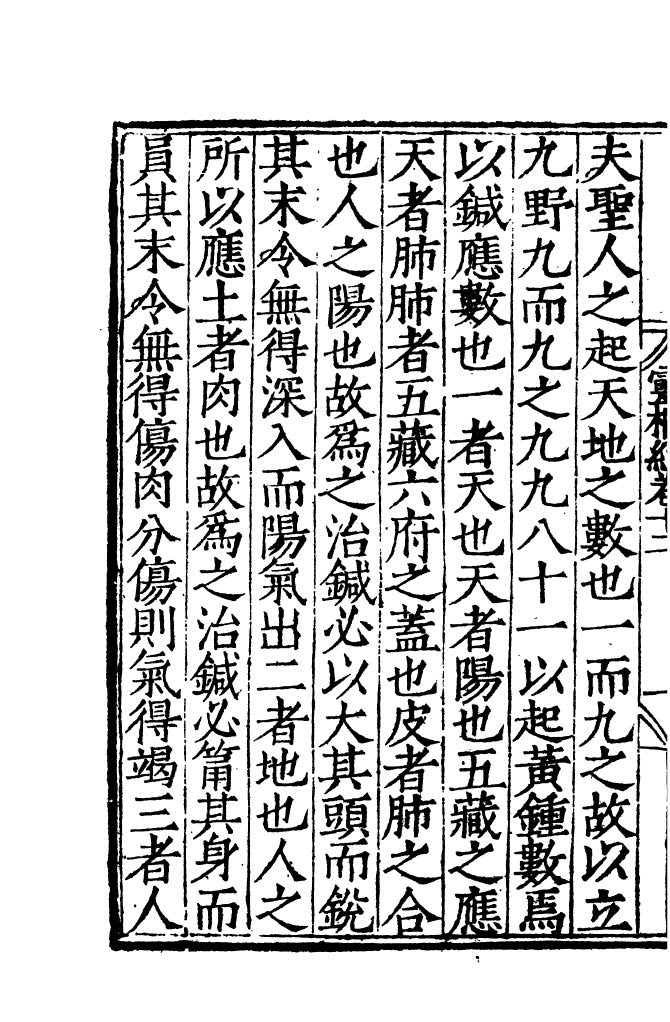 靈樞經卷十二
夫聖人之起天地之數也一而九之故以立
九野九而九之九九八十一以起黃鍾數焉
以鍼應數也一者天也天者陽也五藏之應
天者肺肺者五藏六府之蓋也皮者肺之合
也人之陽也故爲之治鍼必以大其頭而銳
其末令無得深入而陽氣出二者地也人之
所以應土者肉也故爲之治鍼必筩其身而
員其末令無得傷肉分傷則氣得竭三者人